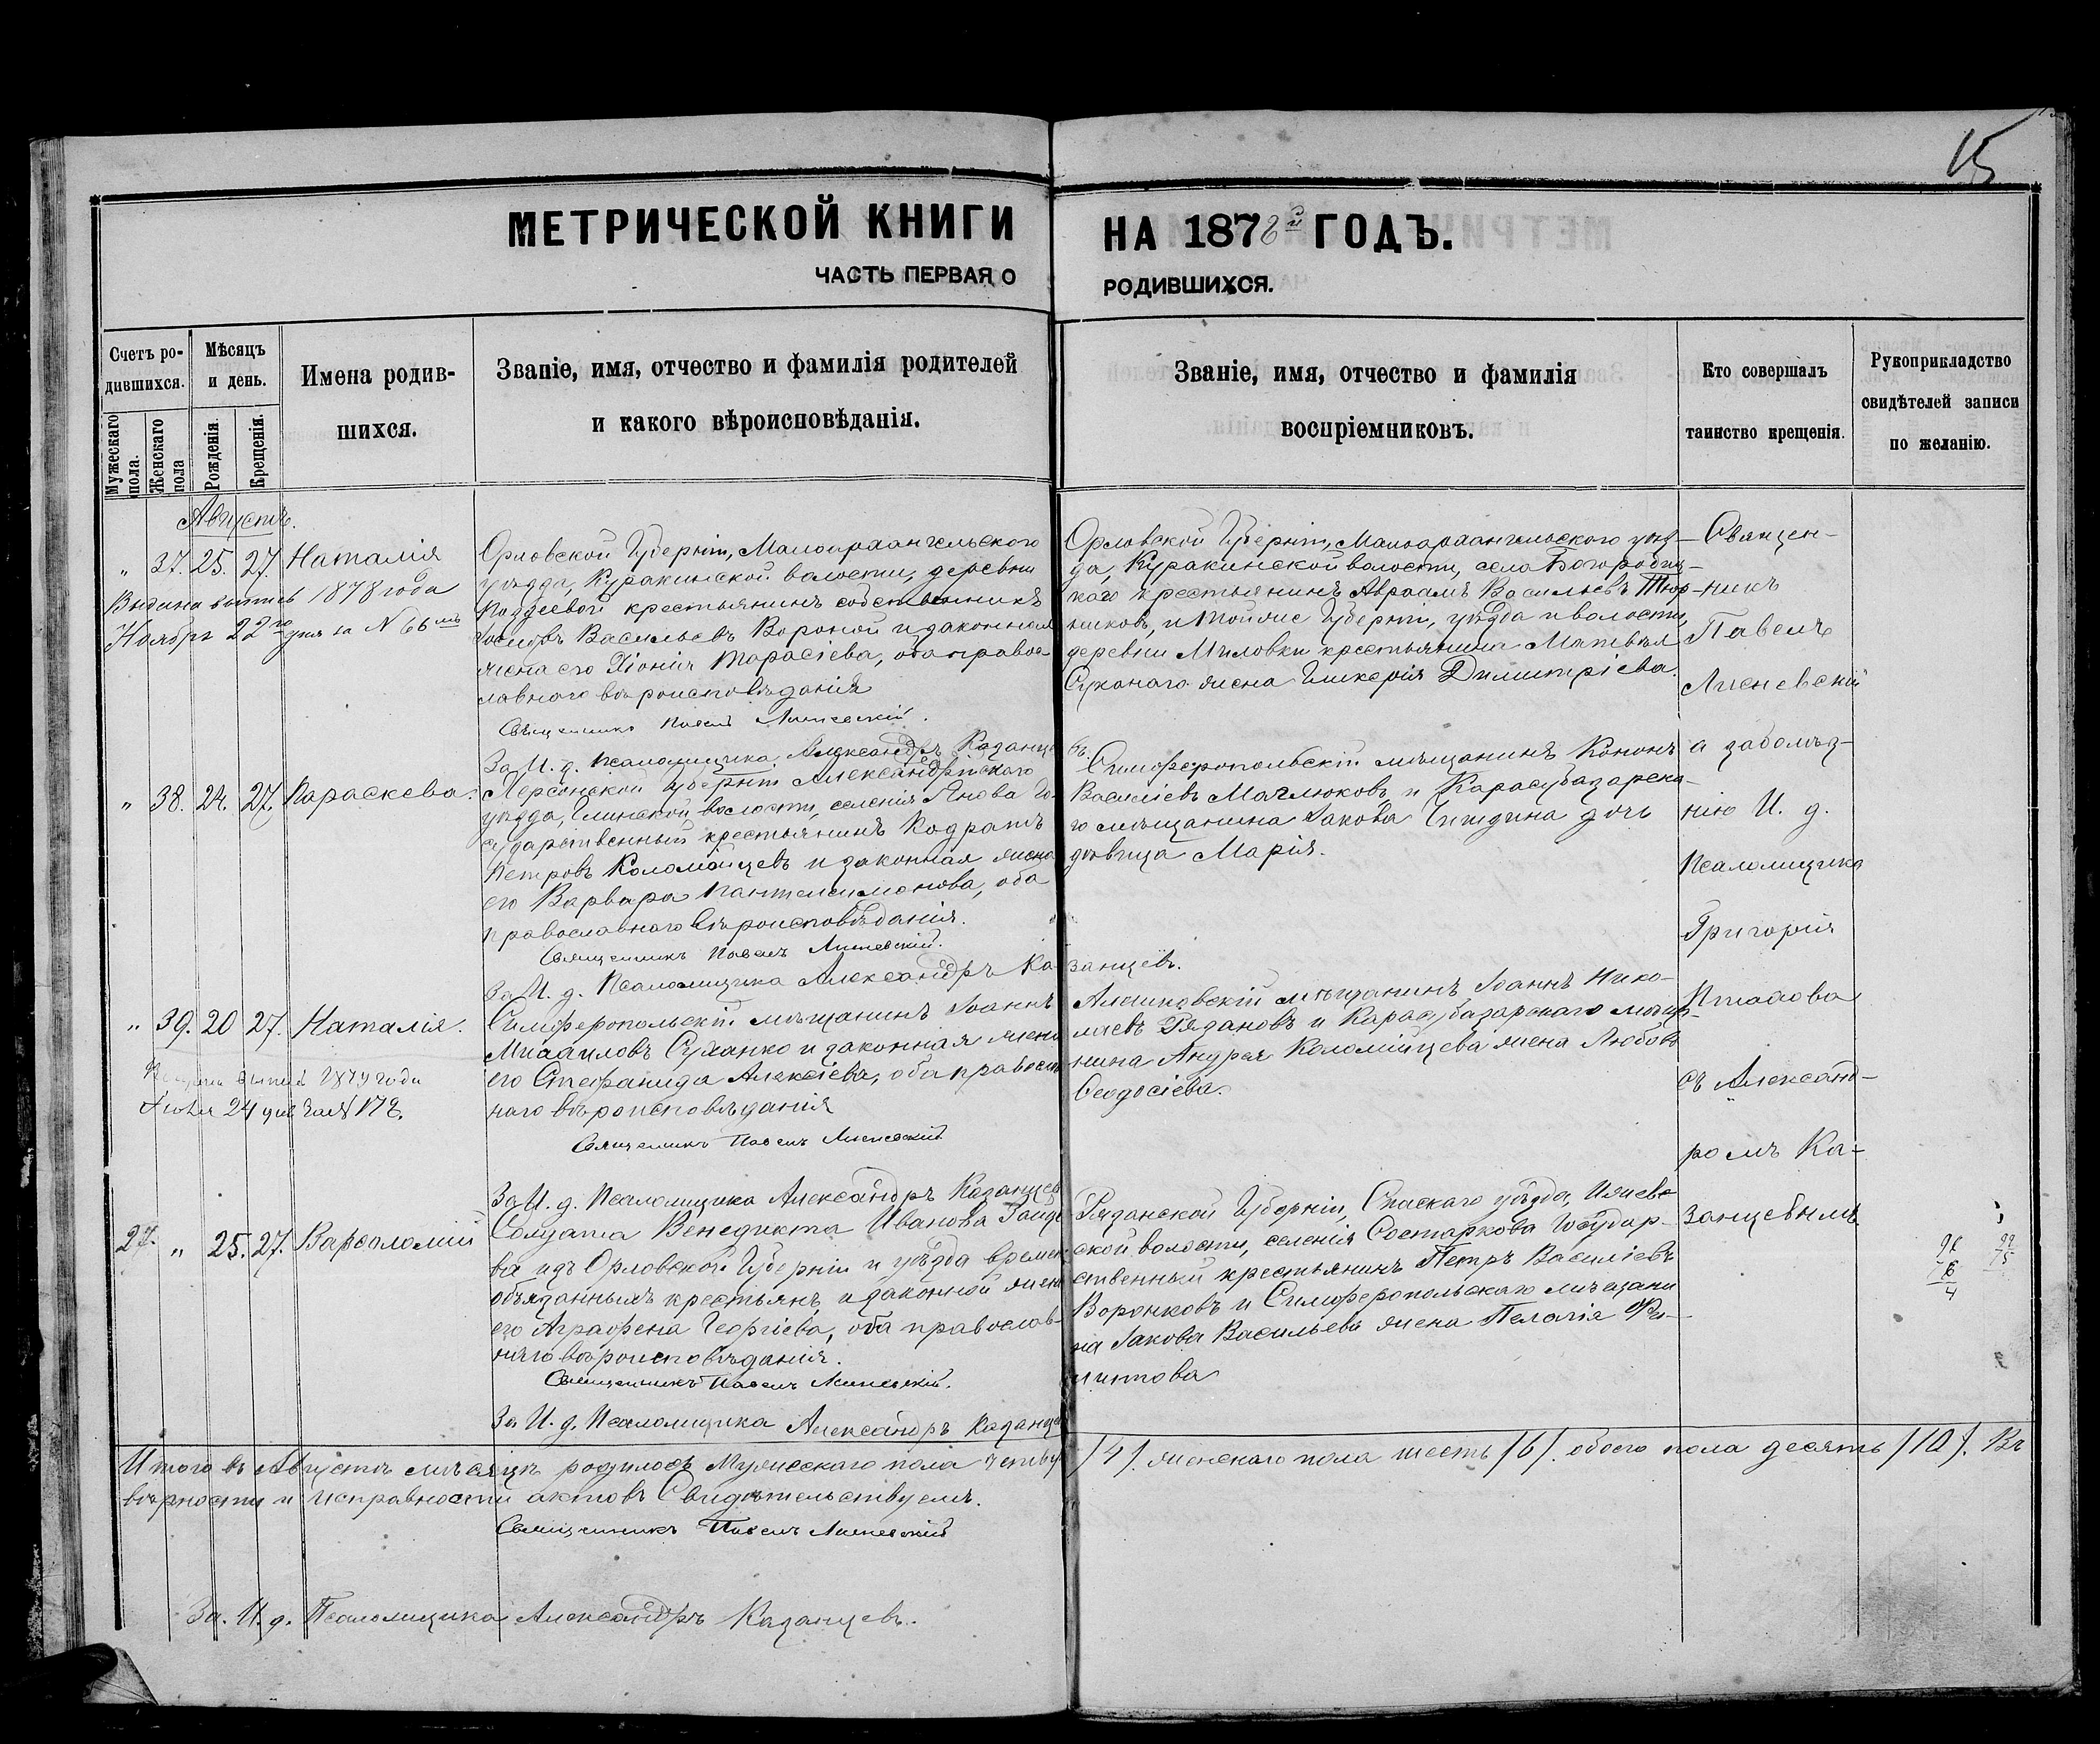 15
МЕТРИЧЕСКОЙ КНИГИ НА 1878й ГОДЪ.
ЧАСТЬ ПЕРВАЯ О РОДИВШИХСЯ.
Счетъ ро-
дившихся.
Мужескаго пола.
Женскаго пола
Мѣсяцъ
и день.
Рожденія.
Крещенія.
Имена родив-
шихся.
Званіе, имя, отчество и фамилія родителей
и какого вѣроисповѣданія.
Званіе, имя, отчество и фамилія
воспріемниковъ.
Кто совершалъ
таинство крещенія.
Рукоприкладство
свидѣтелей записи
по желанію.
Августъ.
„ 37. 25. 27. Наталія
Выдана выпись 1878 года
Ноября 22го дня за N 66мъ
Орловской Губерніи, Малоархангельского
уѣзда, Куракинской волости, деревни
крестьянинъ собственникъ
Іосифъ Васильевъ Вороной и законная
жена его Хіонія Тарасіева, оба правос
лавнаго вѣроисповѣданія
Священникъ Павелъ
За И. д. Псаломщика Александръ Казанце
въ.
Орловской Губерніи, Малоархангельского уѣз-
да, Куракинской волости, села Богородиц-
каго крестьянинъ Авраамъ Васильевъ Тюр-
никовъ, и тойже Губерніи, уѣзда и волости,
деревни Миловки крестьянина Матвѣя
жена Гликерія Димитріева.
„ 38. 24. 27. Параскева.
Херсонской Губерніи Александрійскаго
уѣзда, Глинской волости, селенія Янова Го-
сударственный крестьянинъ Кодратъ
Петровъ Коломойцевъ и законная жена
его Варвара Пантелеимонова, оба
православнаго вѣроисповѣданія.
Священникъ Павелъ
За И. д. Псаломщика Александръ Ка-
занцевъ.
Симферопольскій мѣщанинъ Кононъ
Василіевъ Маглюковъ и Карасубазарска-
го мѣщанина Іакова дочь
дѣвица Марія.
„ 39. 20 27. Наталія.
выпись 1879 года
24 дня за N 172.
Симферопольскій мѣщанинъ Іоаннъ
Михаиловъ Суханко и законная жена
его Стефанида Алексіева, оба правосл
наго вѣроисповѣданія
Священникъ Павелъ
За И. д. Псаломщика Александръ Казанцев
Алешковскій мѣщанинъ Іоаннъ Нико-
лаевъ Рязановъ и Карасубазарскаго мѣща-
нина Андрея Коломійцева жена Любовь
Ѳеодосіева.
27. „ 25. 27. Варѳоломій
Солдата Венедикта Иванова Гайде
ва изъ Орловской Губерніи и уѣзда времен
обязанныхъ крестьянъ и законной жены
его Аграфена Георгіева, оба православ-
наго вѣроисповѣданія.
Священникъ Павелъ
За И. д. Псаломщика Александръ Казанце
Рязанской Губерніи, Спаскаго уѣзда, Ижев-
ской волости, селенія Государ-
ственный крестьянинъ Петръ Василіевъ
Воронковъ и Симферопольскаго мѣщани
на Іакова Васильева жена Пелагія Фи-
липпова
Священ-
никъ
Павелъ
а заболѣз-
нію И. д.
Псаломщика
Григорія
съ Александ-
ромъ Ка-
занцевымъ
Итого въ Августѣ мѣсяцѣ родилось Мужескаго пола четыр /4/. женскаго пола шесть /6/. обоего пола десять /10/. Въ
вѣрности и исправности актовъ Свидѣтельствуемъ.
Священникъ Павелъ
За. И. д. Псаломщика Александръ Казанцевъ.